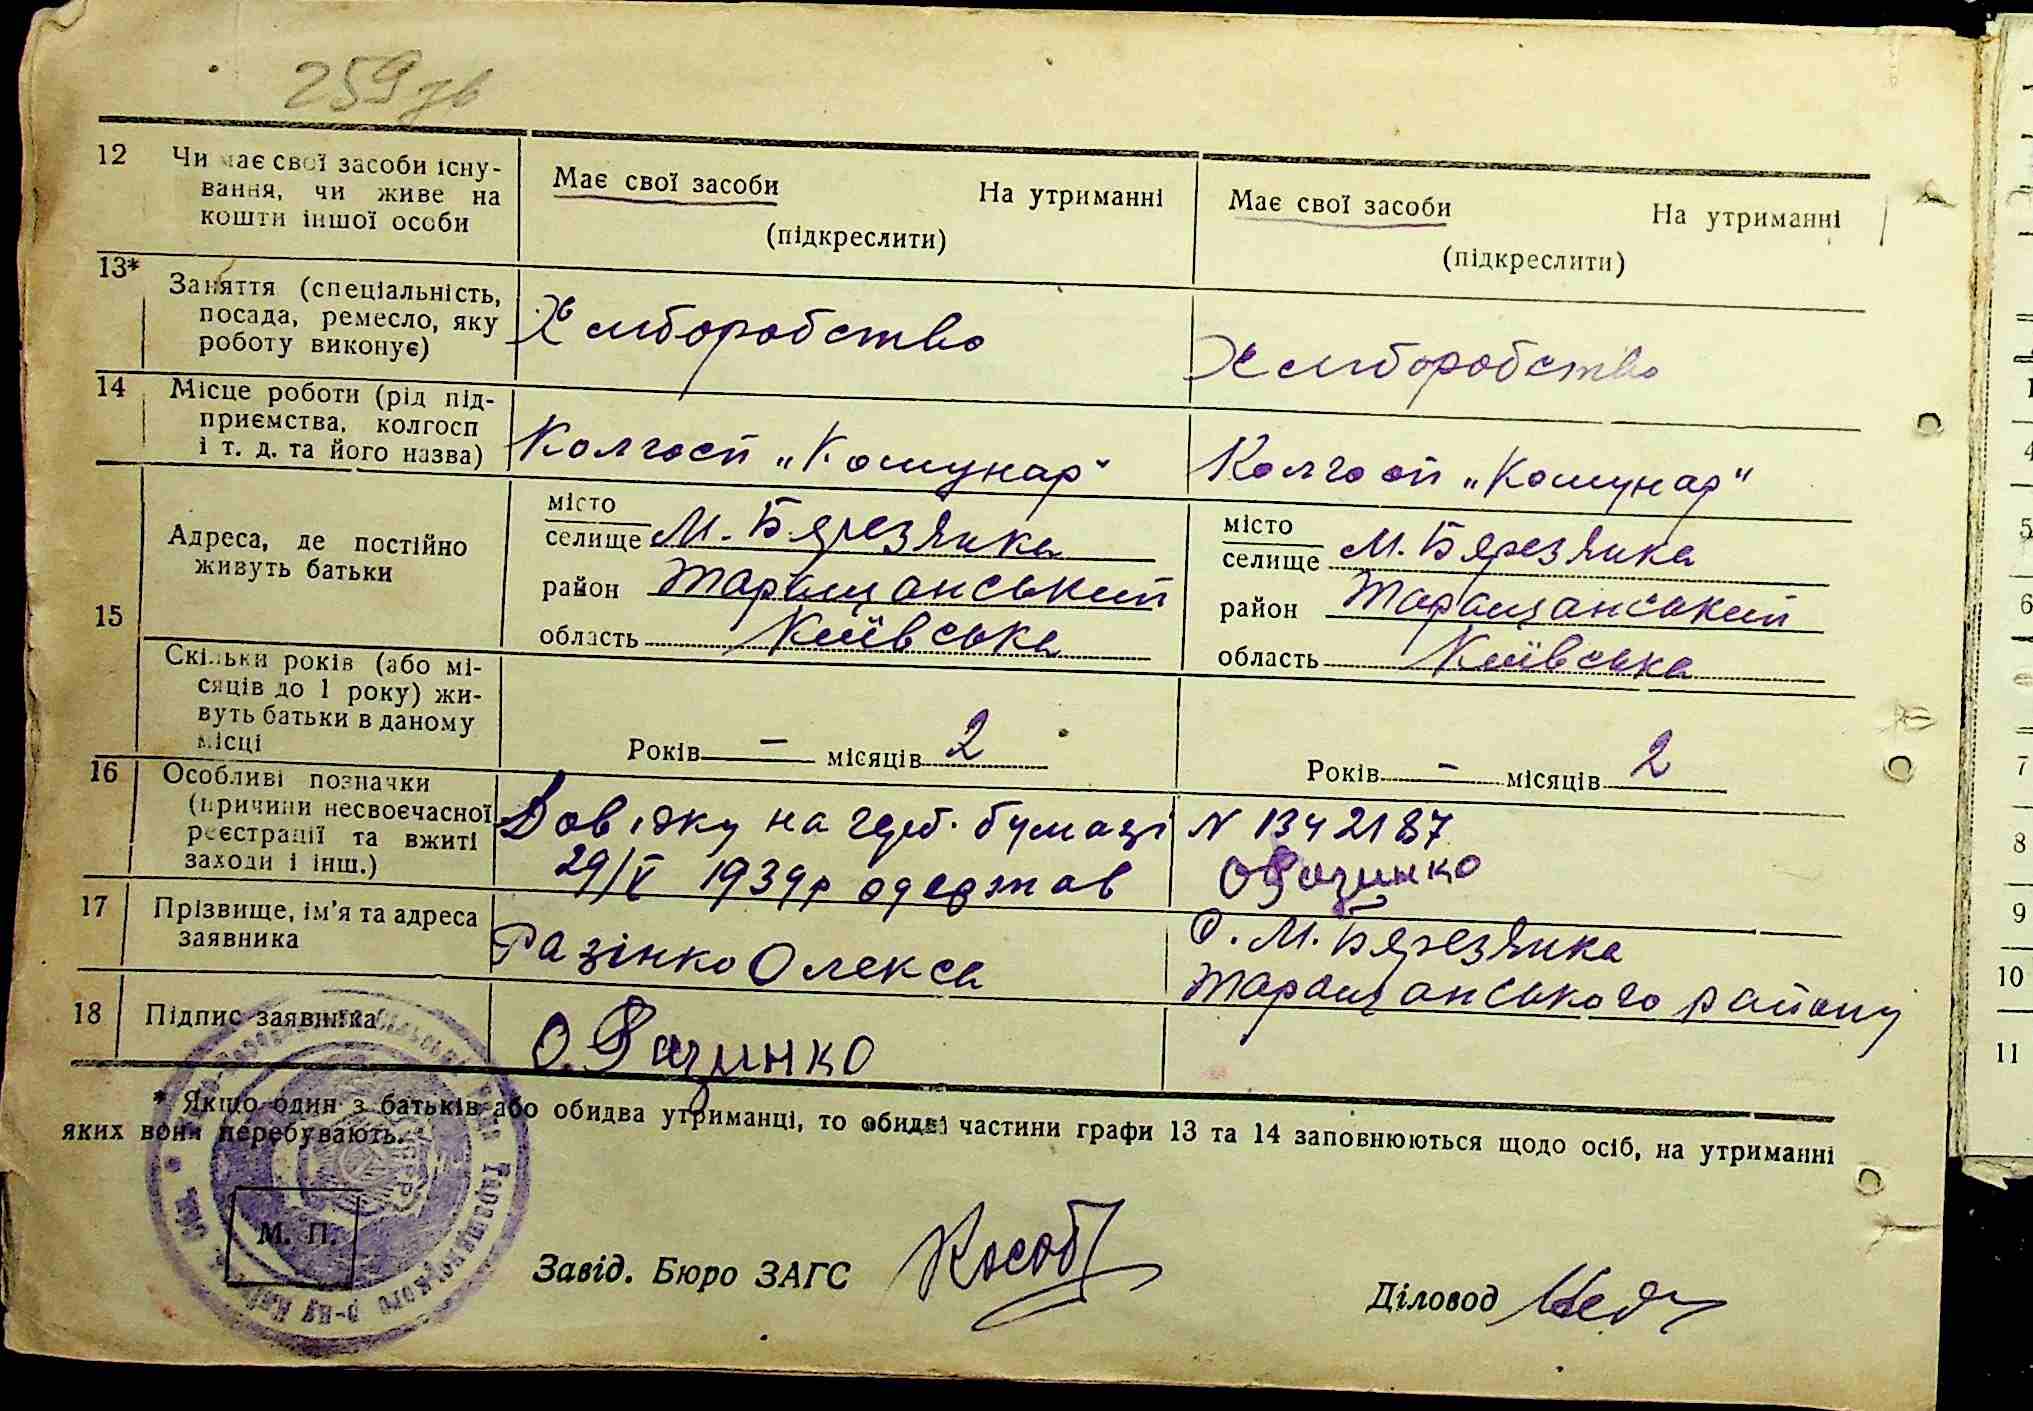 259 зв
12 Чи має свої засоби існу-
вання, чи живе на
кошти іншої особи
Має свої засоби На утриманні
(підкреслити)
Має свої засоби На утриманні
(підкреслити)
13* Заняття (спеціальність,
посада, ремесло, яку
роботу виконує)
Хліборобство
Хліборобство
14 Місце роботи (рід під-
приємства, колгосп
і т. д. та його назва)
Колгосп „Комунар"
Колгосп „Комунар"
15 Адреса, де постійно
живуть батьки
місто
селище М. Бярезянка
район Таращанський
область Київська
місто
селище М. Бярезянка
район Таращанський
область Київська
Скільки років (або мі-
сяців до 1 року) жи-
вуть батьки в даному
місці
Років — місяців 2
Років — місяців 2
16 Особливі позначки
(причини несвоєчасної
реєстрації та вжиті
заходи і інш.)
Довідку на герб. бумазі N 1342187
29/V 1939р одержав О Разинко
17 Прізвище, ім'я та адреса
заявника
Разінко Олекса
с. М. Бярезянка
Таращанського району
18 Підпис заявника
О. Разинко
* Якщо один з батьків або обидва утриманці, то обидві частини графи 13 та 14 заповнюються щодо осіб, на утриманні
яких вони перебувають.
М. П.
Завід. Бюро ЗАГС
Діловод
4
5
6
7
8
9
10
11